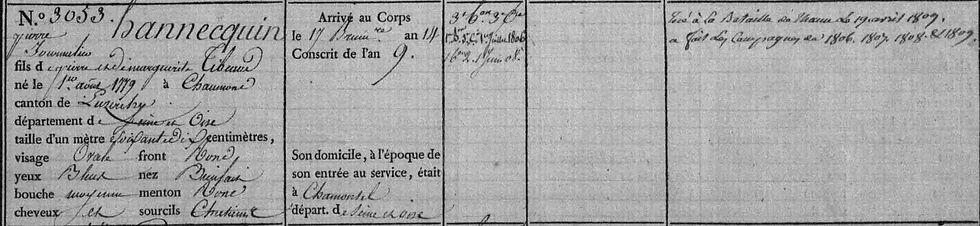 N.° 3053. hannecquin
pierre
fils de pierre et de marguerite Tibeaud
né le 1.er août 1779 à Chaumont
canton de
département de Seine et Oise
taille d'un mètre soixante dix centimètres,
visage Ovale front Rond
yeux Bleus nez Bienfait
bouche moyenne menton Rond
cheveux et sourcils
Arrivé au Corps
le 17 Brum.re an 14
Conscrit de l'an 9.
Son domicile, à l'époque de
son entrée au service, était
à Chamontel
départ. de Seine et oise
3.e b.on 3.e C.ie
Juillet 1806
Juin 08.
Tué à la Bataille de Thann Le 19 avril 1809.
a fait Les Campagnes de 1806. 1807. 1808. et 1809.